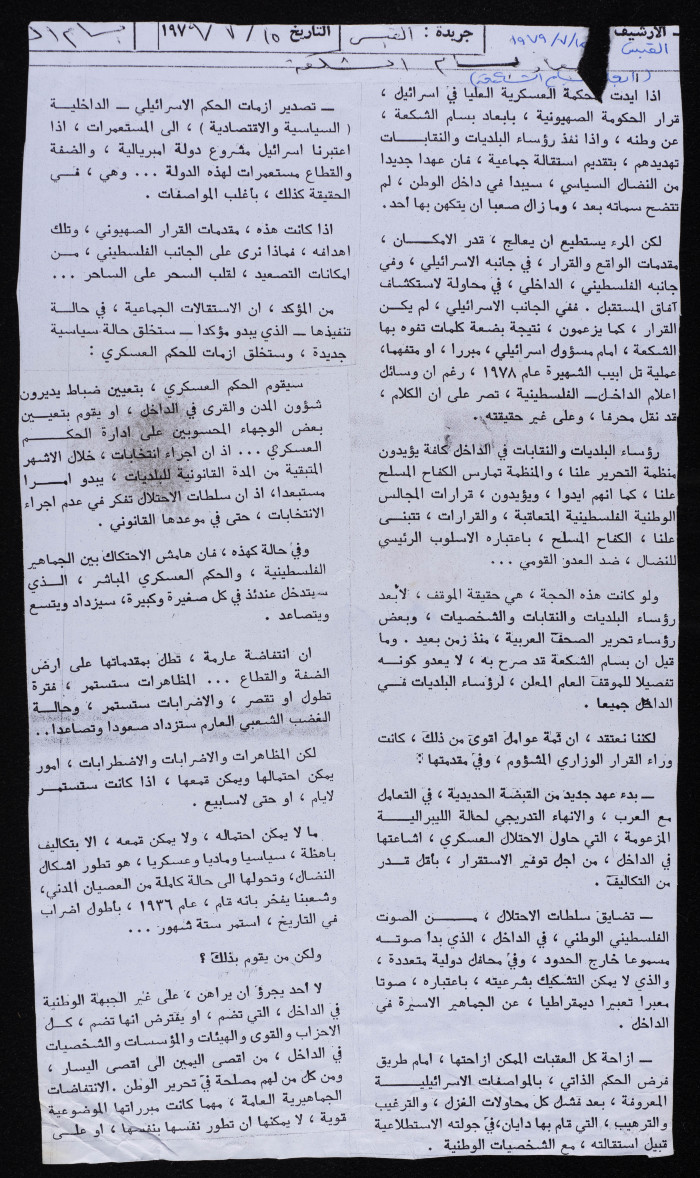 ـ الأرشيف
القبس ١٩٧٩/٧/١٥
جريدة : القبس
التاريخ ١٥ / ٧ / ١٩٧٩
بسام الشكعة
اذا ايدت محكمة العسكرية العليا في اسرائيل ،
قرار الحكومة الصهيونية ، بابعاد بسام الشكعة ،
عن وطنه ، واذا نفذ رؤساء البلديات والنقابات
تهديدهم ، بتقديم استقالة جماعية ، فان عهدا جديدا
من النضال السياسي ، سيبدا في داخل الوطن ، لم
تتضح سماته بعد ، وما زال صعبا ان يتكهن بها أحد.
لكن المرء يستطيع ان يعالج ، قدر الامكــان ،
مقدمات الواقع والقرار ، في جانبه الاسرائيلي ، وفي
جانبه الفلسطيني ، الداخلي ، في محاولة لاستكشاف
آفاق المستقبل . ففي الجانب الاسرائيلي ، لم يكــن
القرار ، كما يزعمون ، نتيجة بضعة كلمات تفوه بها
الشكعة ، امام مسؤول اسرائيلي ، مبررا ، او متفهما،
عملية تل ابيب الشهيرة عام ١٩٧٨ ، رغم ان وسائل
اعلام الداخل ــ الفلسطينية ، تصر على ان الكلام ،
قد نقل محرفا ، وعلى غير حقيقته .
رؤساء البلديات والنقابات في الداخل كافة يؤيدون
منظمة التحرير علنا ، والمنظمة تمارس الكفاح المسلح
علنا ، كما انهم ايدوا ، ويؤيدون ، قرارات المجالس
الوطنية الفلسطينية المتعاقبة ، والقرارات ، تتبنــى
علنا ، الكفاح المسلح ، باعتباره الاسلوب الرئيسي
للنضال ، ضد العدو القومي ...
ولو كانت هذه الحجة ، هي حقيقة الموقف ، لأبعد
رؤساء البلديات والنقابات والشخصيات ، وبعض
رؤساء تحرير الصحف العربية ، منذ زمن بعيد . وما
قيل ان بسام الشكعة قد صرح به ، لا يعدو كونــه
تفصيلا للموقف العام المعلن ، لرؤساء البلديات فــي
الداخل جميعا .
لكننا نعتقد ، ان ثمة عوامل اقوى من ذلك ، كانت
وراء القرار الوزاري المشؤوم ، وفي مقدمتها :
ــ بدء عهد جديد من القبضة الحديدية ، في التعامل
مع العرب ، والانهاء التدريجي لحالة الليبراليــة
المزعومة ، التي حاول الاحتلال العسكري ، اشاعتها
في الداخل ، من اجل توفير الاستقرار ، بأقل قــدر
من التكاليف .
ــ تضايق سلطات الاحتلال ، مــن الصوت
الفلسطيني الوطني ، في الداخل ، الذي بدأ صوتــه
مسموعا خارج الحدود ، وفي محافل دولية متعددة ،
والذي لا يمكن التشكيك بشرعيته ، باعتباره ، صوتا
معبرا تعبيرا ديمقراطيا ، عن الجماهير الاسيرة في
الداخل .
ــ ازاحة كل العقبات الممكن ازاحتها ، امام طريق
فرض الحكم الذاتي ، بالمواصفات الاسرائيليــة
المعروفة ، بعد فشل كل محاولات الغزل ، والترغيب
والترهيب ، التي قام بها دايان،في جولته الاستطلاعية
قبيل استقالته ، مع الشخصيات الوطنية .
ــ تصدير ازمات الحكم الاسرائيلي ــ الداخليــة
( السياسية والاقتصادية ) ، الى المستعمرات ، اذا
اعتبرنا اسرائيل مشروع دولة امبريالية ، والضفة
والقطاع مستعمرات لهذه الدولة ... وهي ، فــي
الحقيقة كذلك ، بأغلب المواصفات .
اذا كانت هذه ، مقدمات القرار الصهيوني ، وتلك
اهدافه ، فماذا نرى على الجانب الفلسطيني ، مــن
امكانات التصعيد ، لقلب السحر على الساحر ...
من المؤكد ، ان الاستقالات الجماعية ، في حالــة
تنفيذها ــ الذي يبدو مؤكدا ــ ستخلق حالة سياسية
جديدة ، وستخلق ازمات للحكم العسكري :
سيقوم الحكم العسكري ، بتعيين ضباط يديرون
شؤون المدن والقرى في الداخل ، او يقوم بتعييــن
بعض الوجهاء المحسوبين على ادارة الحكــم
العسكري ... اذ ان اجراء انتخابات ، خلال الاشهر
المتبقية من المدة القانونية للبلديات ، يبدو امــرا
مستبعدا، اذ ان سلطات الاحتلال تفكر في عدم اجراء
الانتخابات ، حتى في موعدها القانوني .
وفي حالة كهذه ، فان هامش الاحتكاك بين الجماهير
الفلسطينية ، والحكم العسكري المباشر ، الــذي
سيتدخل عندئذ في كل صغيرة وكبيرة، سيزداد ويتسع
ويتصاعد .
ان انتفاضة عارمة ، تطل بمقدماتها على ارض
الضفة والقطاع ... المظاهرات ستستمر ، فترة
تطول او تقصر ، والاضرابات ستستمر ، وحالــة
الغضب الشعبي العارم ستزداد صعودا وتصاعدا..
لكن المظاهرات والاضرابات والاضطرابات ، امور
يمكن احتمالها ويمكن قمعها ، اذا كانت ستستمــر
لايام ، او حتى لاسابيع .
ما لا يمكن احتماله ، ولا يمكن قمعه ، الا بتكاليف
باهظة ، سياسيا وماديا وعسكريا ، هو تطور اشكال
النضال، وتحولها الى حالة كاملة من العصيان المدني،
وشعبنا يفخر بانه قام ، عام ١٩٣٦ ، بأطول اضراب
في التاريخ ، استمر ستة شهور ...
ولكن من يقوم بذلك ؟
لا احد يجرؤ ان يراهن ، على غير الجبهة الوطنية
في الداخل ، التي تضم ، او يفترض انها تضم ، كــل
الاحزاب والقوى والهيئات والمؤسسات والشخصيات
في الداخل ، من اقصى اليمين الى اقصى اليسار ،
ومن كل من لهم مصلحة في تحرير الوطن . الانتفاضات
الجماهيرية العامة ، مهما كانت مبرراتها الموضوعية
قوية ، لا يمكنها ان تطور نفسها بنفسها ، او علــى